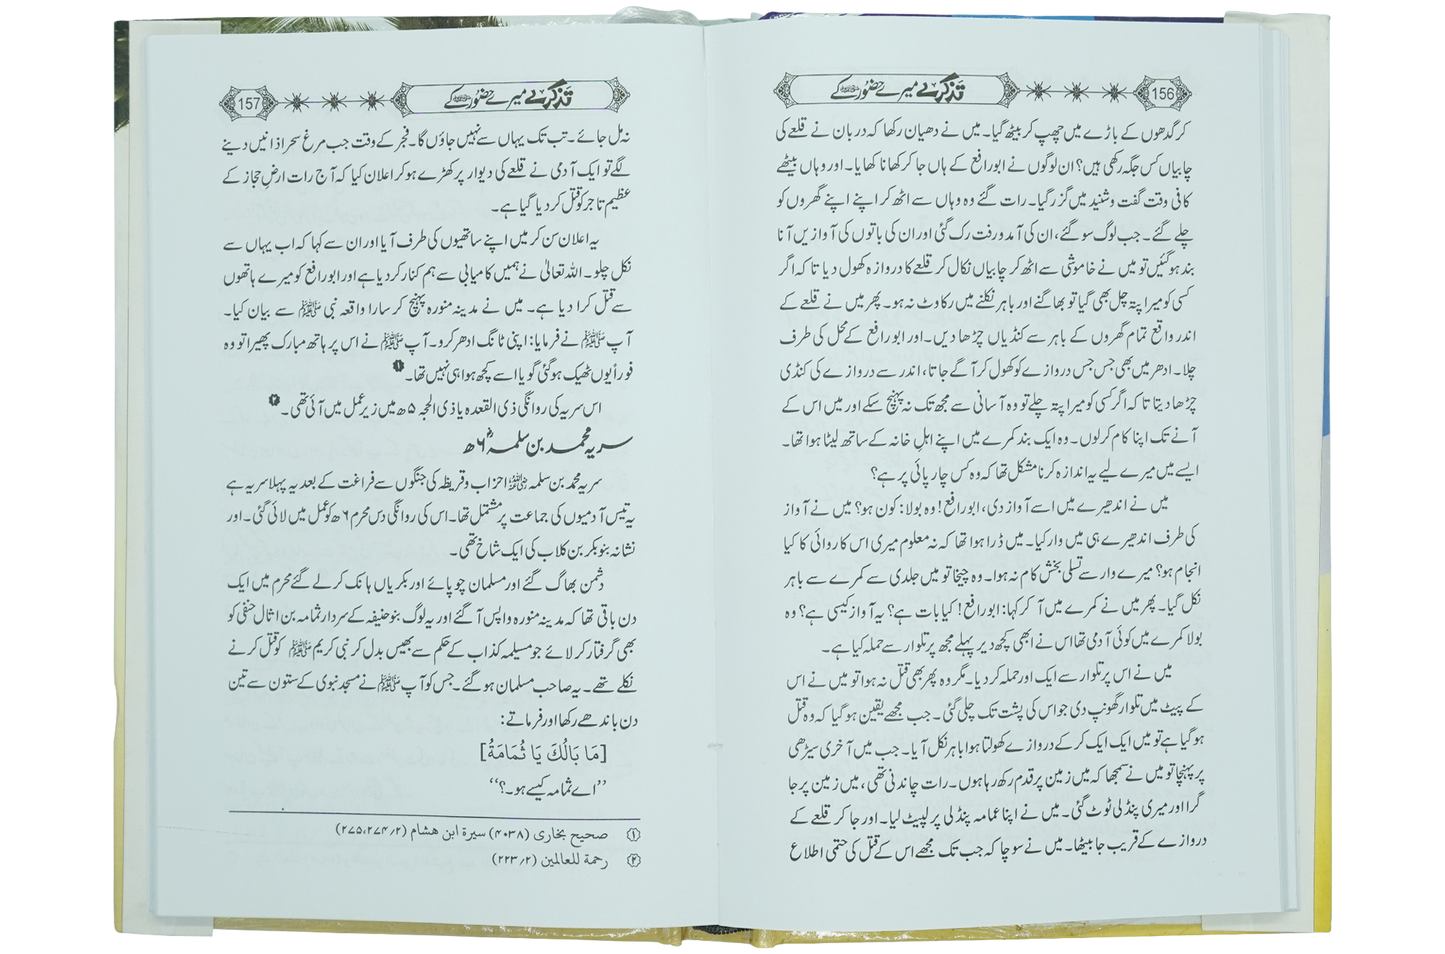 156 تذکرے میرے حضور ﷺ کے
کر گدھوں کے باڑے میں چھپ کر بیٹھ گیا۔ میں نے دھیان رکھا کہ دربان نے قلعے کی
چابیاں کس جگہ رکھی ہیں؟ ان لوگوں نے ابورافع کے ہاں جا کر کھانا کھایا۔ اور وہاں بیٹھے
کافی وقت گفت و شنید میں گزر گیا۔ رات گئے وہ وہاں سے اٹھ کر اپنے اپنے گھروں کو
چلے گئے۔ جب لوگ سو گئے، ان کی آمد و رفت رک گئی اور ان کی باتوں کی آوازیں آنا
بند ہو گئیں تو میں نے خاموشی سے اٹھ کر چابیاں نکال کر قلعے کا دروازہ کھول دیا تا کہ اگر
کسی کو میرا پتہ چل بھی گیا تو بھاگنے اور باہر نکلنے میں رکاوٹ نہ ہو۔ پھر میں نے قلعے کے
اندر واقع تمام گھروں کے باہر سے کنڈیاں چڑھا دیں۔ اور ابورافع کے محل کی طرف
چلا۔ ادھر میں بھی جس جس دروازے کو کھول کر آگے جاتا، اندر سے دروازے کی کنڈی
چڑھا دیتا تا کہ اگر کسی کو میرا پتہ چلے تو وہ آسانی سے مجھ تک نہ پہنچ سکے اور میں اس کے
آنے تک اپنا کام کر لوں۔ وہ ایک بند کمرے میں اپنے اہلِ خانہ کے ساتھ لیٹا ہوا تھا۔
ایسے میں میرے لیے یہ اندازہ کرنا مشکل تھا کہ وہ کس چارپائی پر ہے؟
میں نے اندھیرے میں اسے آواز دی، ابورافع! وہ بولا: کون ہو؟ میں نے آواز
کی طرف اندھیرے ہی میں وار کیا۔ میں ڈرا ہوا تھا کہ نہ معلوم میری اس کاروائی کا کیا
انجام ہو؟ میرے وار سے تسلی بخش کام نہ ہوا۔ وہ چیخا تو میں جلدی سے کمرے سے باہر
نکل گیا۔ پھر میں نے کمرے میں آ کر کہا: ابورافع! کیا بات ہے؟ یہ آواز کیسی ہے؟ وہ
بولا کمرے میں کوئی آدمی تھا اس نے ابھی کچھ دیر پہلے مجھ پر تلوار سے حملہ کیا ہے۔
میں نے اس پر تلوار سے ایک اور حملہ کر دیا۔ مگر وہ پھر بھی قتل نہ ہوا تو میں نے اس
کے پیٹ میں تلوار گھونپ دی جو اس کی پشت تک چلی گئی۔ جب مجھے یقین ہو گیا کہ وہ قتل
ہو گیا ہے تو میں ایک ایک کر کے دروازے کھولتا ہوا باہر نکل آیا۔ جب میں آخری سیڑھی
پر پہنچا تو میں نے سمجھا کہ میں زمین پر قدم رکھ رہا ہوں۔ رات چاندنی تھی، میں زمین پر جا
گرا اور میری پنڈلی ٹوٹ گئی۔ میں نے اپنا عمامہ پنڈلی پر لپیٹ لیا۔ اور جا کر قلعے کے
دروازے کے قریب جا بیٹھا۔ میں نے سوچا کہ جب تک مجھے اس کے قتل کی حتمی اطلاع
157 تذکرے میرے حضور ﷺ کے
نہ مل جائے۔ تب تک یہاں سے نہیں جاؤں گا۔ فجر کے وقت جب مرغ سحر اذانیں دینے
لگے تو ایک آدمی نے قلعے کی دیوار پر کھڑے ہو کر اعلان کیا کہ آج رات ارضِ حجاز کے
عظیم تاجر کو قتل کر دیا گیا ہے۔
یہ اعلان سن کر میں اپنے ساتھیوں کی طرف آیا اور ان سے کہا کہ اب یہاں سے
نکل چلو۔ اللہ تعالیٰ نے ہمیں کامیابی سے ہم کنار کر دیا ہے اور ابورافع کو میرے ہاتھوں
سے قتل کرا دیا ہے۔ میں نے مدینہ منورہ پہنچ کر سارا واقعہ نبی ﷺ سے بیان کیا۔
آپ ﷺ نے فرمایا: اپنی ٹانگ ادھر کرو۔ آپ ﷺ نے اس پر ہاتھ مبارک پھیرا تو وہ
فوراً یوں ٹھیک ہو گئی گویا اسے کچھ ہوا ہی نہیں تھا۔ ①
اس سریہ کی روانگی ذی القعدہ یا ذی الحجہ ۵ھ میں زیر عمل میں آئی تھی۔ ②
سریہ محمد بن سلمہؓ ۶ھ
سریہ محمد بن سلمہ احزاب و قریظہ کی جنگوں سے فراغت کے بعد یہ پہلا سریہ ہے
یہ تیس آدمیوں کی جماعت پر مشتمل تھا۔ اس کی روانگی دس محرم ۶ھ کو عمل میں لائی گئی۔ اور
نشانہ بنو بکر بن کلاب کی ایک شاخ تھی۔
دشمن بھاگ گئے اور مسلمان چوپائے اور بکریاں ہانک کر لے گئے محرم میں ایک
دن باقی تھا کہ مدینہ منورہ واپس آ گئے اور یہ لوگ بنو حنیفہ کے سردار ثمامہ بن اثال حنفی کو
بھی گرفتار کر لائے جو مسیلمہ کذاب کے حکم سے بھیس بدل کر نبی کریم ﷺ کو قتل کرنے
نکلے تھے۔ یہ صاحب مسلمان ہو گئے۔ جس کو آپ ﷺ نے مسجد نبوی کے ستون سے تین
دن باندھے رکھا اور فرماتے:
[مَا بَالُكَ يَا ثُمَامَةُ]
’’اے ثمامہ کیسے ہو۔؟‘‘
① صحیح بخاری (۴۰۳۸) سیرۃ ابن هشام (۲/۲۷۴،۲۷۵)
② رحمة للعالمین (۲/۲۲۳)